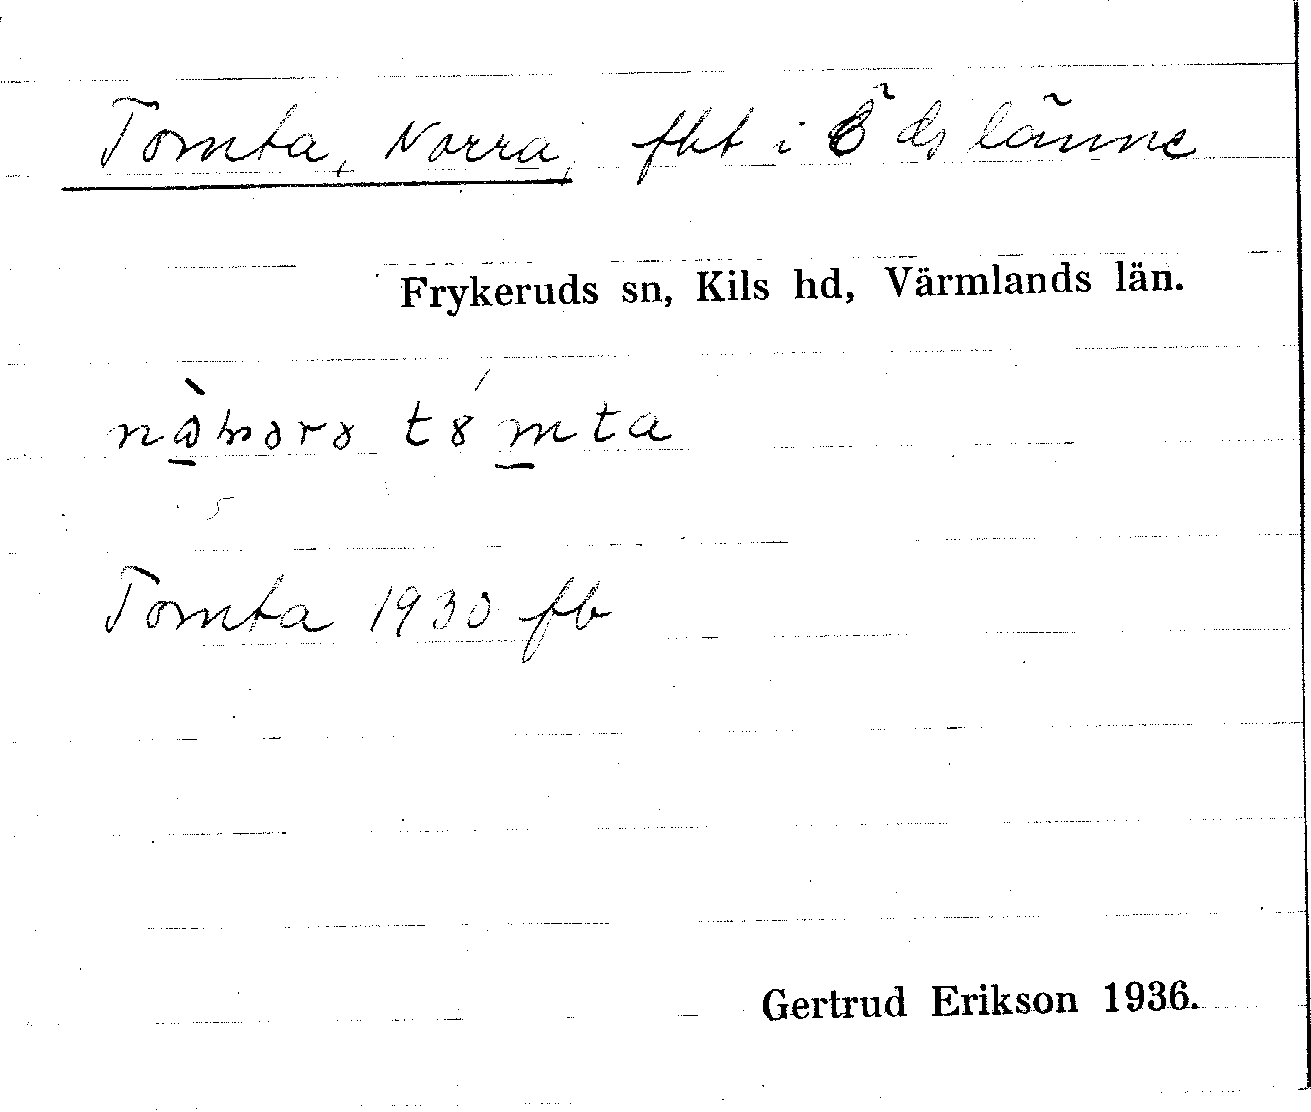 Tomta, Norra, fbt i Ödslänne
Frykeruds sn, Kils hd, Värmlands län.
Tomta 1930 fb
Gertrud Erikson 1936.